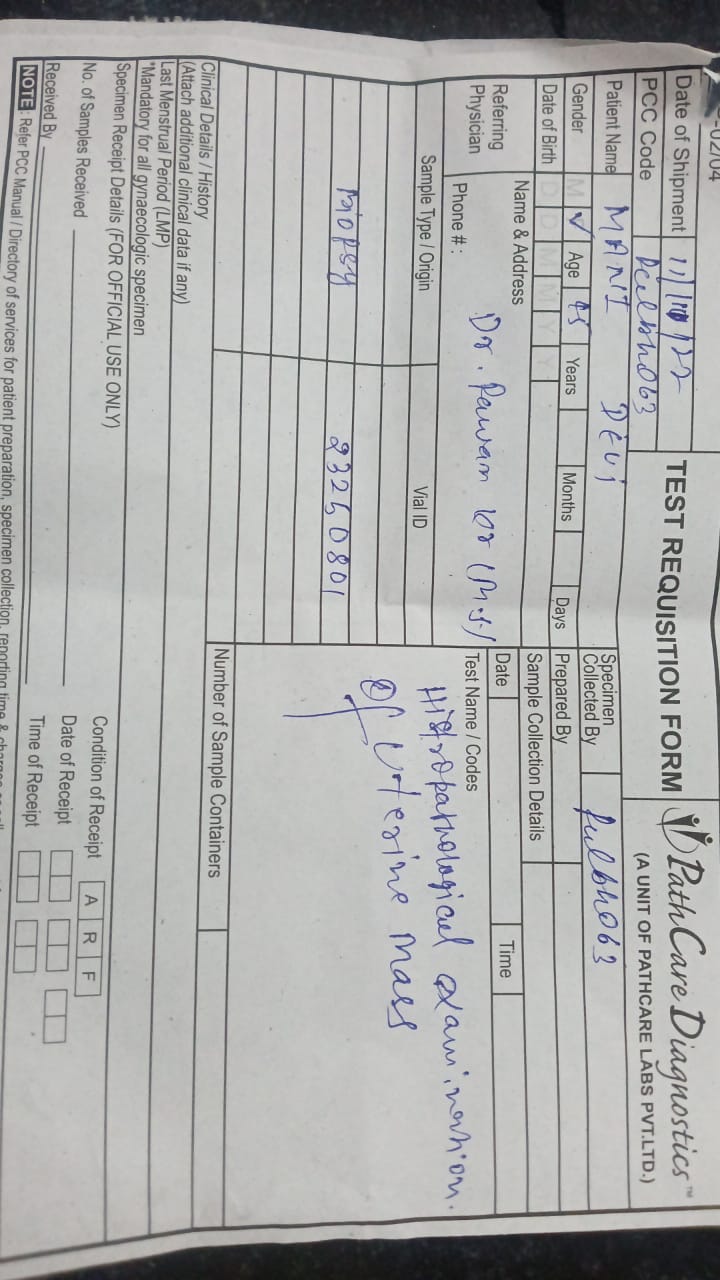 -02/04
Date of Shipment 11/10/22
PCC Code
TEST REQUISITION FORM
PathCare Diagnostics™
(A UNIT OF PATHCARE LABS PVT.LTD.)
Patient Name MANI DEVI
Gender M ✓ Age 45 Years Months Days
Date of Birth D D M M Y Y
Specimen
Collected By
Prepared By
Sample Collection Details
Date Time
Referring
Physician
Name & Address
Dr. Pawan kr (M.S)
Phone # :
Sample Type / Origin Vial ID
Biopsy 23260801
Test Name / Codes
Histropathological examination.
Of Uterine Mass
Number of Sample Containers
Clinical Details / History
(Attach additional clinical data if any)
Last Menstrual Period (LMP)
*Mandatory for all gynaecologic specimen
Specimen Receipt Details (FOR OFFICIAL USE ONLY)
No. of Samples Received Condition of Receipt A R F
Received By Date of Receipt
Time of Receipt
NOTE : Refer PCC Manual / Directory of services for patient preparation, specimen collection, reporting time &